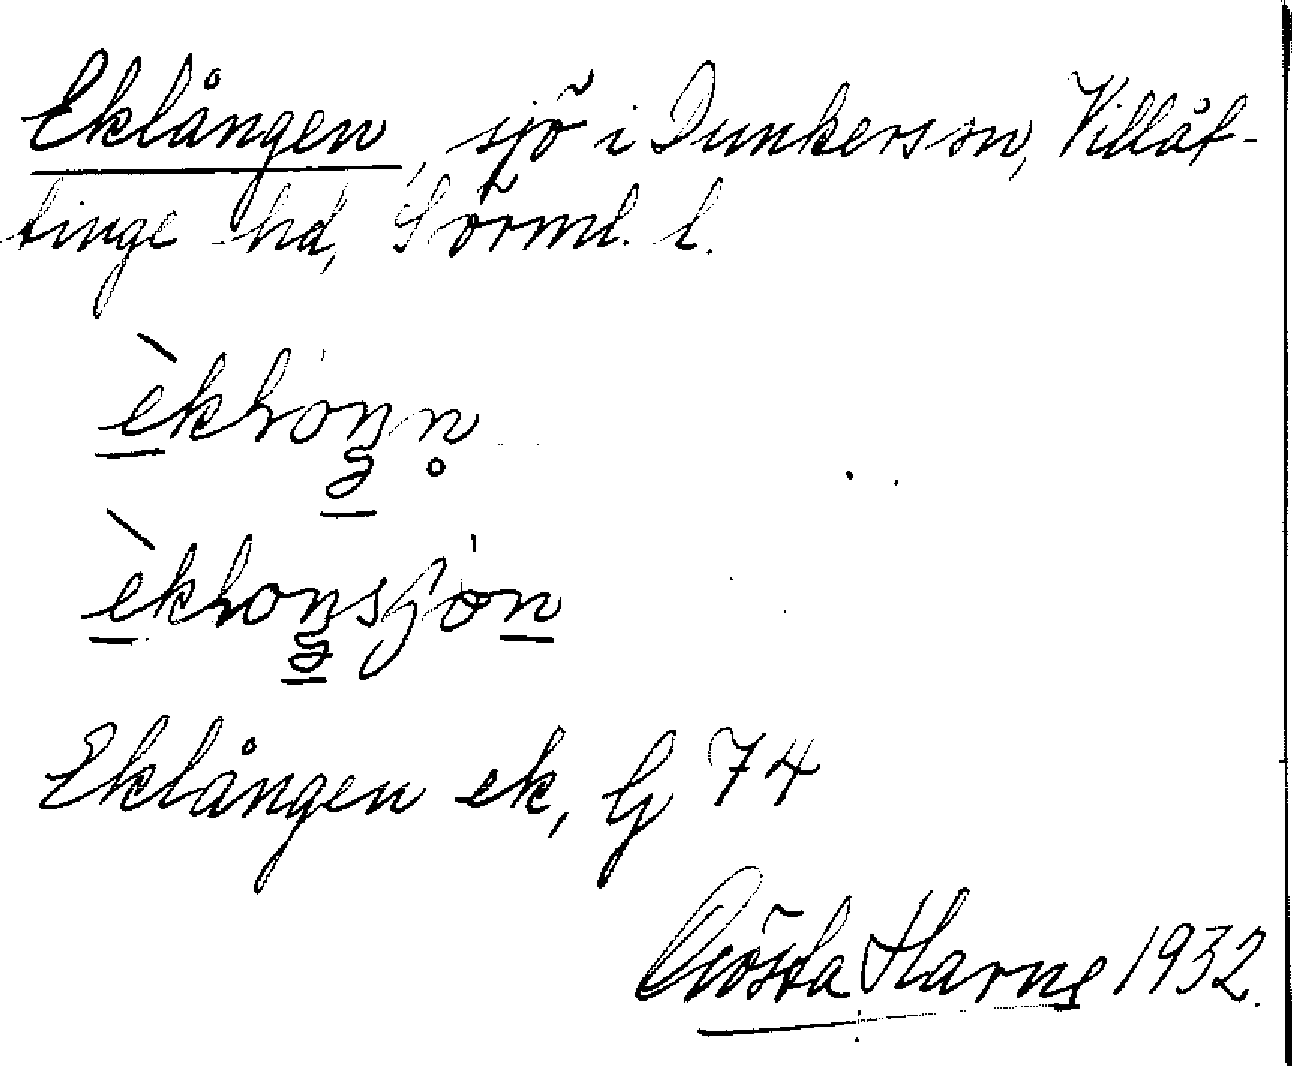 Eklången, sjö i Dunkers sn, Villåt-
tinge hd, Sörml. l.
Eklången ek, G 74
Gösta Harne 1932.